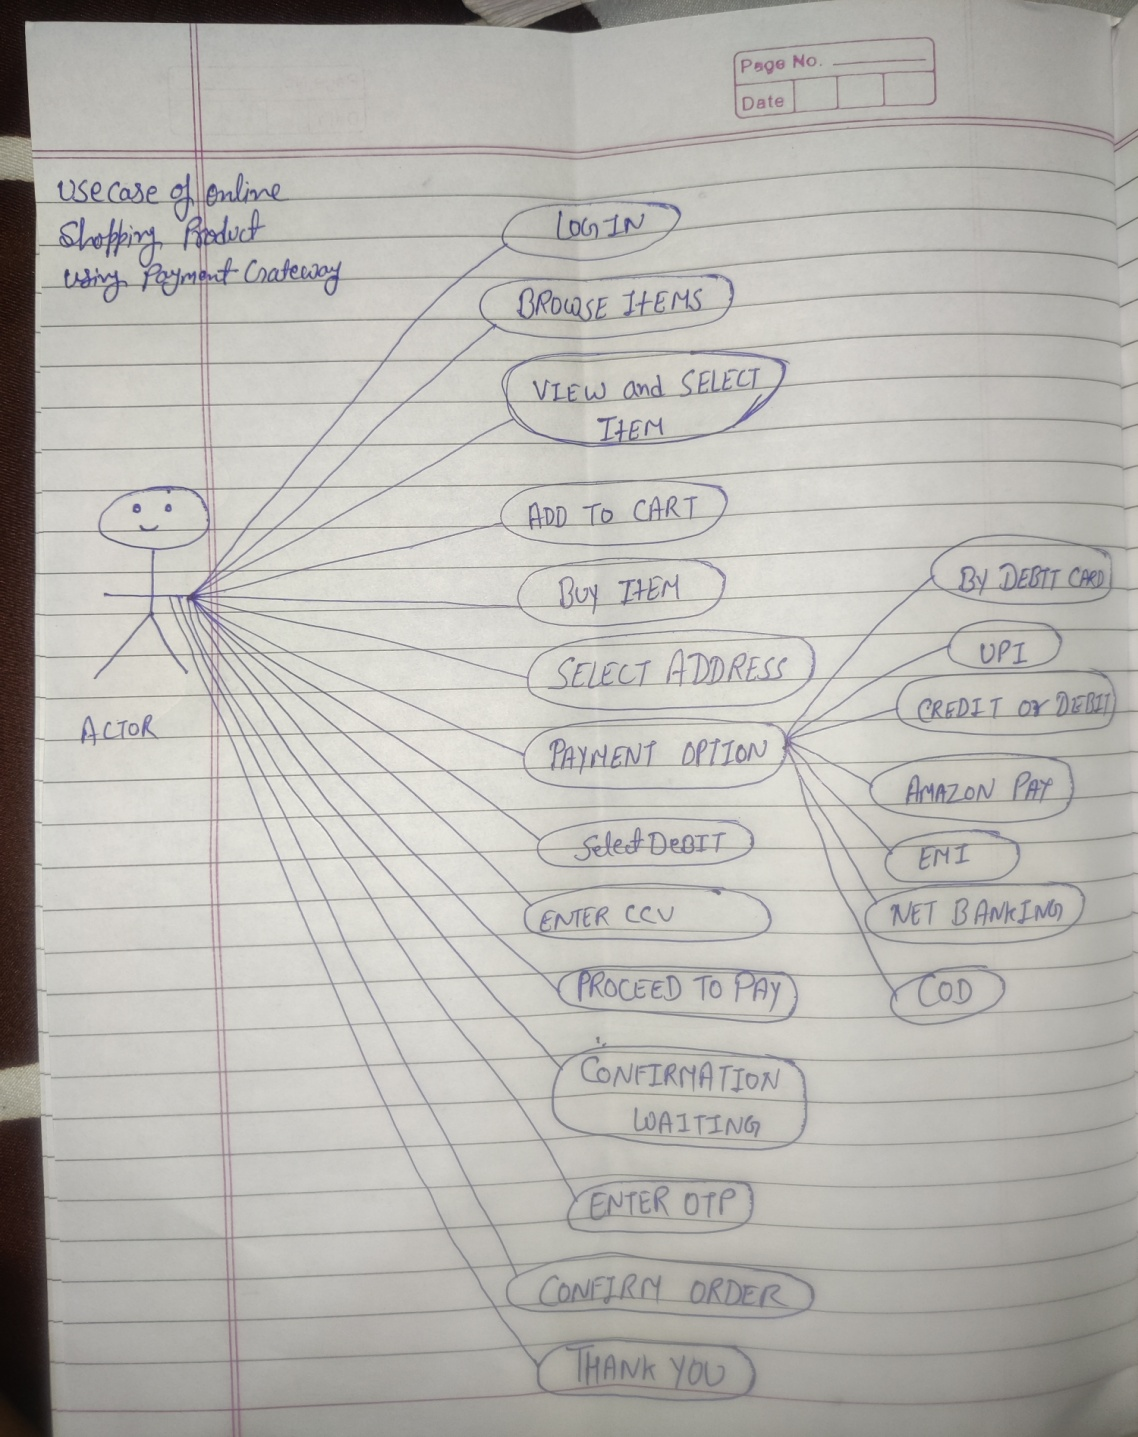 Page No.
Date
Usecase of online
Shopping Product
using Payment Gateway
LOGIN
BROWSE ITEMS
VIEW and SELECT
ITEM
ADD TO CART
BUY ITEM
SELECT ADDRESS
PAYMENT OPTION
Select DEBIT
ENTER CCV
PROCEED TO PAY
CONFIRMATION
WAITING
ENTER OTP
CONFIRM ORDER
THANK YOU
BY DEBIT CARD
UPI
CREDIT or DEBIT
AMAZON PAY
EMI
NET BANKING
COD
ACTOR